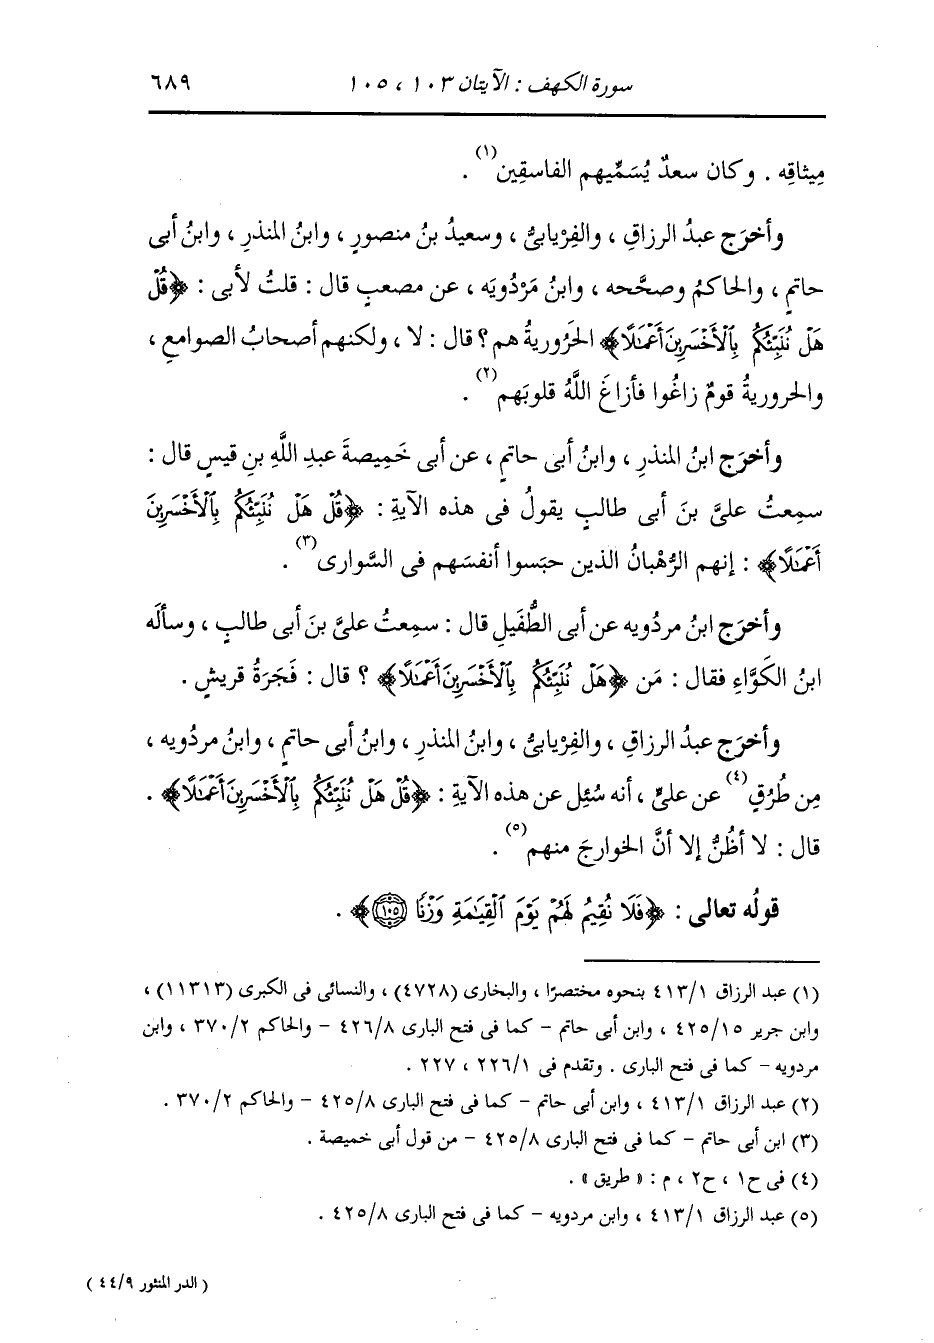 سورة الكهف : الآيتان ١٠٣ ، ١٠٥ ٦٨٩
مِيثاقِه . وكان سعدٌ يُسَمِّيهم الفاسقِين(١) .
وأخرَج عبدُ الرزاقِ ، والفِرْيابىُّ ، وسعيدُ بنُ منصورٍ ، وابنُ المنذرِ ، وابنُ أبى
حاتمٍ ، والحاكمُ وصحَّحه ، وابنُ مَرْدُويَه ، عن مصعبٍ قال : قلتُ لأبى : ﴿قُلْ
هَلْ نُنَبِّئُكُم بِٱلْأَخْسَرِينَ أَعْمَٰلًا﴾ الحَرُوريةُ هم ؟ قال : لا ، ولكنهم أصحابُ الصوامعِ ،
والحروريةُ قومٌ زاغُوا فأزاغَ اللَّهُ قلوبَهم(٢) .
وأخرَج ابنُ المنذرِ ، وابنُ أبى حاتمٍ ، عن أبى خَمِيصةَ عبدِ اللَّهِ بنِ قيسٍ قال :
سمِعتُ علىَّ بنَ أبى طالبٍ يقولُ فى هذه الآيةِ : ﴿قُلْ هَلْ نُنَبِّئُكُم بِٱلْأَخْسَرِينَ
أَعْمَٰلًا﴾ : إنهم الرُّهْبانُ الذين حبَسوا أنفسَهم فى السَّوارى(٣) .
وأخرَج ابنُ مردويه عن أبى الطُّفَيلِ قال : سمِعتُ علىَّ بنَ أبى طالبٍ ، وسألَه
ابنُ الكَوَّاءِ فقال : مَن ﴿هَلْ نُنَبِّئُكُم بِٱلْأَخْسَرِينَ أَعْمَٰلًا﴾ ؟ قال : فَجَرَةُ قريشٍ .
وأخرَج عبدُ الرزاقِ ، والفِرْيابىُّ ، وابنُ المنذرِ ، وابنُ أبى حاتمٍ ، وابنُ مردُويه ،
مِن طُرُقٍ(٤) عن علىٍّ ، أنه سُئِل عن هذه الآيةِ : ﴿قُلْ هَلْ نُنَبِّئُكُم بِٱلْأَخْسَرِينَ أَعْمَٰلًا﴾ .
قال : لا أظُنُّ إلا أنَّ الخوارجَ منهم(٥) .
قولُه تعالى : ﴿فَلَا نُقِيمُ لَهُمْ يَوْمَ ٱلْقِيَٰمَةِ وَزْنًا ١٠٥﴾ .
(١) عبد الرزاق ٤١٣/١ بنحوه مختصرًا ، والبخارى (٤٧٢٨) ، والنسائى فى الكبرى (١١٣١٣) ،
وابن جرير ٤٢٥/١٥ ، وابن أبى حاتم - كما فى فتح البارى ٤٢٦/٨ - والحاكم ٣٧٠/٢ ، وابن
مردويه - كما فى فتح البارى . وتقدم فى ٢٢٦/١ ، ٢٢٧ .
(٢) عبد الرزاق ٤١٣/١ ، وابن أبى حاتم - كما فى فتح البارى ٤٢٥/٨ - والحاكم ٣٧٠/٢ .
(٣) ابن أبى حاتم - كما فى فتح البارى ٤٢٥/٨ - من قول أبى خميصة .
(٤) فى ح١ ، ح٢ ، م : « طريق » .
(٥) عبد الرزاق ٤١٣/١ ، وابن مردويه - كما فى فتح البارى ٤٢٥/٨ .
( الدر المنثور ٤٤/٩ )